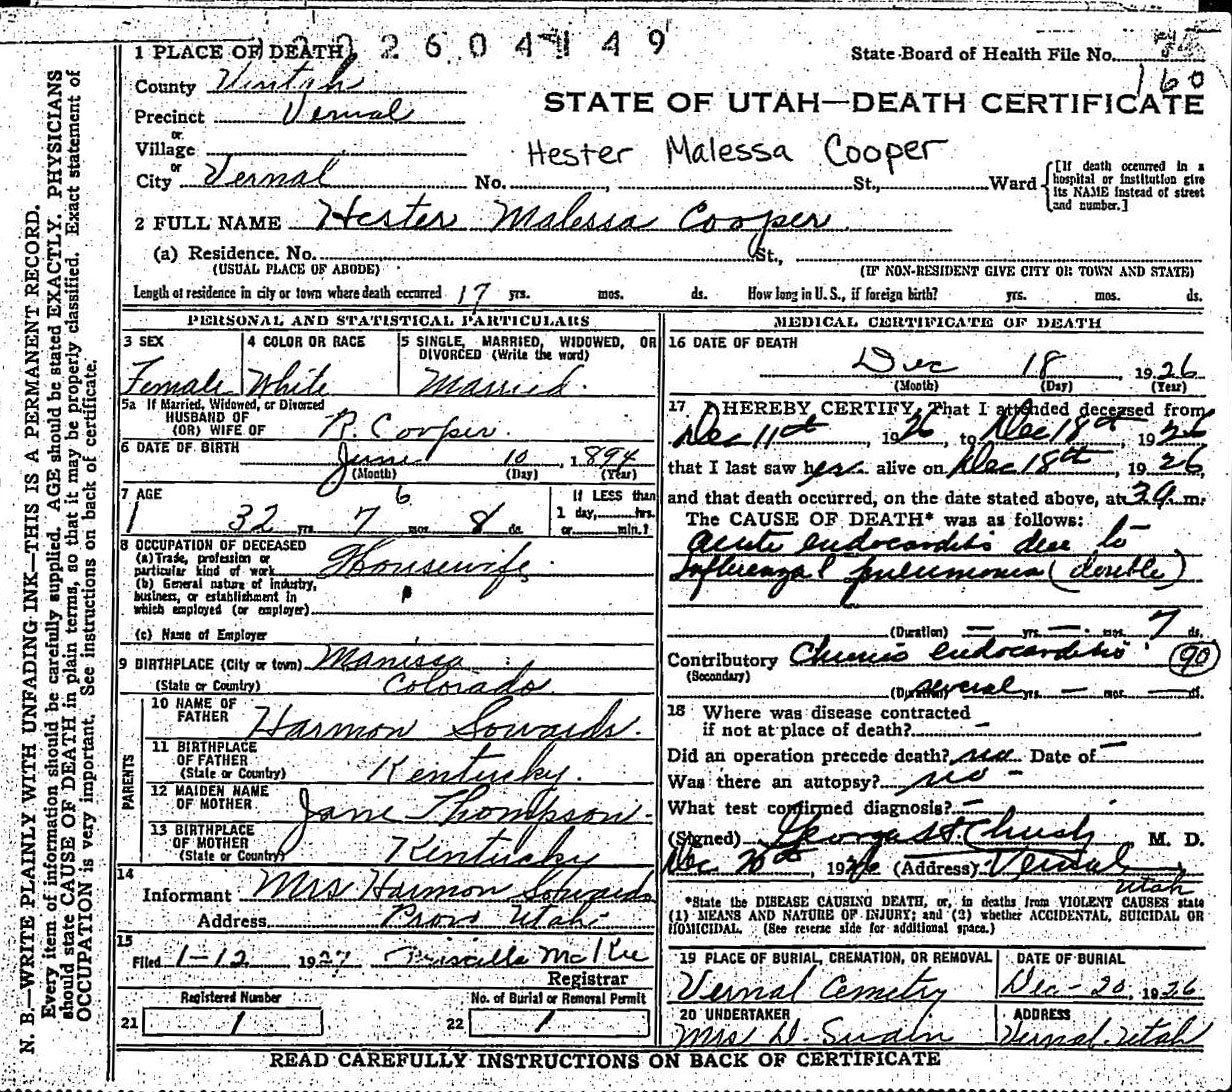 2604149
State Board of Health File No.
160
1 PLACE OF DEATH
County Uintah
STATE OF UTAH—DEATH CERTIFICATE
Precinct Vernal
or
Village
Hester Malessa Cooper
or
City Vernal No. , St., Ward [If death occurred in a hospital or institution give its NAME instead of street and number.]
2 FULL NAME Hester Malessa Cooper
(a) Residence. No. St.,
(USUAL PLACE OF ABODE) (IF NON-RESIDENT GIVE CITY OR TOWN AND STATE)
Length of residence in city or town where death occurred 17 yrs. mos. ds. How long in U. S., if foreign birth? yrs. mos. ds.
PERSONAL AND STATISTICAL PARTICULARS
3 SEX
Female
4 COLOR OR RACE
White
5 SINGLE, MARRIED, WIDOWED, OR
DIVORCED (Write the word)
Married.
5a If Married, Widowed, or Divorced
HUSBAND OF
(OR) WIFE OF R. Cooper
6 DATE OF BIRTH
June 10, 1894
(Month) (Day) (Year)
7 AGE 6
1 32 yrs 7 mos 8 ds.
If LESS than
1 day, hrs.
or min.?
8 OCCUPATION OF DECEASED
(a) Trade, profession or
particular kind of work Housewife.
(b) General nature of industry,
business, or establishment in
which employed (or employer)
(c) Name of Employer
9 BIRTHPLACE (City or town) Manissa
(State or Country) Colorado
PARENTS
10 NAME OF
FATHER Harmon Sowards.
11 BIRTHPLACE
OF FATHER
(State or Country) Kentucky.
12 MAIDEN NAME
OF MOTHER Jane Thompson.
13 BIRTHPLACE
OF MOTHER
(State or Country) Kentucky
14
Informant Mrs Harmon Sowards
Address Provo Utah
15
Filed 1-12 1927 Priscilla McKee
Registrar
Registered Number
21 1
No. of Burial or Removal Permit
22 1
MEDICAL CERTIFICATE OF DEATH
16 DATE OF DEATH
Dec 18, 1926
(Month) (Day) (Year)
17 I HEREBY CERTIFY, That I attended deceased from
Dec 11th, 1926, to Dec 18th, 1926
that I last saw her alive on Dec 18th, 1926,
and that death occurred, on the date stated above, at m.
The CAUSE OF DEATH* was as follows:
acute endocarditis due to
Influenzal pneumonia (double)
(Duration) — yrs. — mos. 7 ds.
Contributory Chronic endocarditis 90
(Secondary)
(Duration) several yrs — mos — ds.
18 Where was disease contracted
if not at place of death? —
Did an operation precede death? no Date of —
Was there an autopsy? no -
What test confirmed diagnosis? —
(Signed) George H. M. D.
Dec 20th, 1926 (Address) Vernal
Utah
*State the DISEASE CAUSING DEATH, or, in deaths from VIOLENT CAUSES state
(1) MEANS AND NATURE OF INJURY; and (2) whether ACCIDENTAL, SUICIDAL OR
HOMICIDAL. (See reverse side for additional space.)
19 PLACE OF BURIAL, CREMATION, OR REMOVAL
Vernal Cemetry
DATE OF BURIAL
Dec-20, 1926
20 UNDERTAKER
Mrs D. Swain
ADDRESS
Vernal Utah
READ CAREFULLY INSTRUCTIONS ON BACK OF CERTIFICATE
N. B.—WRITE PLAINLY WITH UNFADING INK—THIS IS A PERMANENT RECORD.
Every item of information should be carefully supplied. AGE should be stated EXACTLY. PHYSICIANS
should state CAUSE OF DEATH in plain terms, so that it may be properly classified. Exact statement of
OCCUPATION is very important. See instructions on back of certificate.